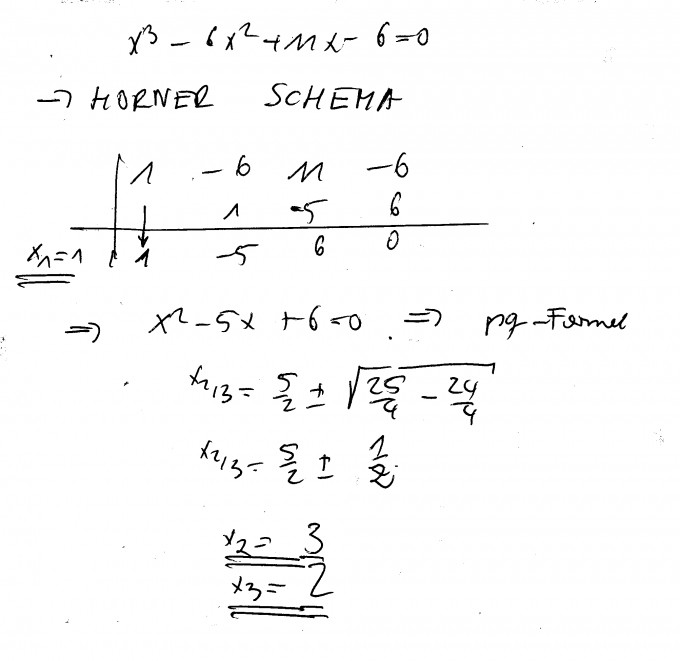 x³ - 6x² + 11x - 6 = 0
→ HORNER SCHEMA
1 -6 11 -6
↓ 1 -5 6
x₁ = 1 1 -5 6 0
⇒ x² - 5x + 6 = 0 ⇒ pq-Formel
x₂/₃ = 5/2 ± √(25/4 - 24/4)
x₂/₃ = 5/2 ± 1/2
x₂ = 3
x₃ = 2